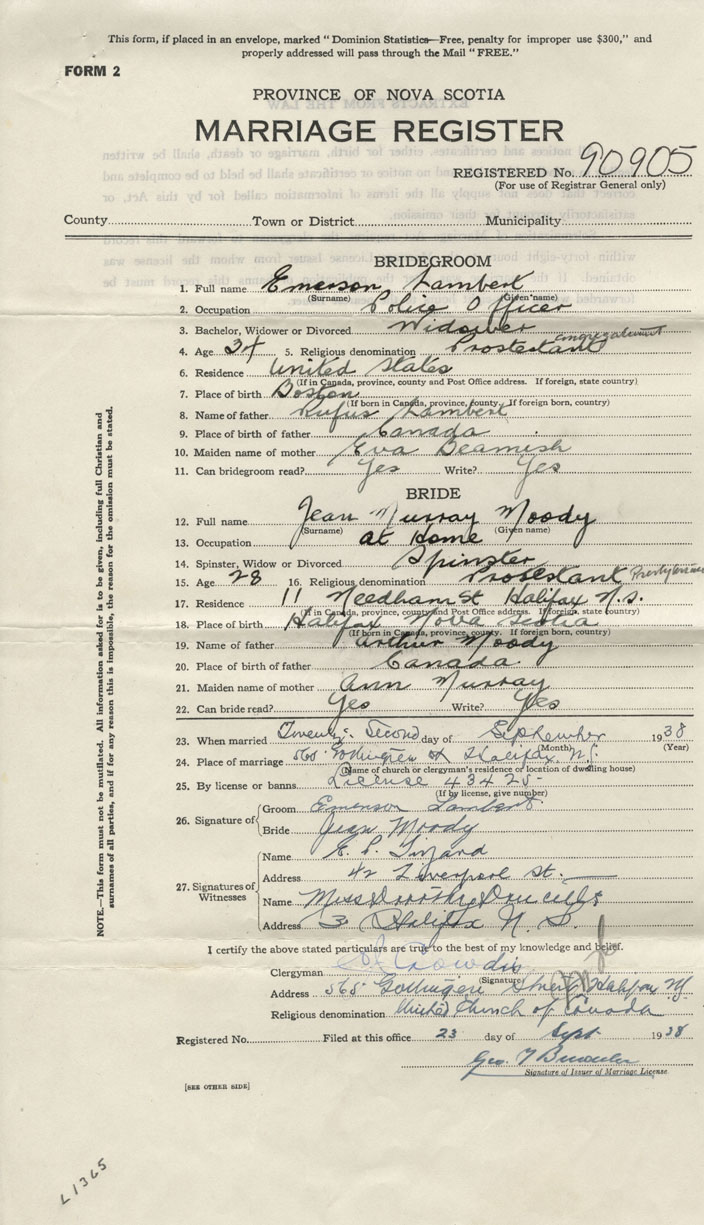 This form, if placed in an envelope, marked "Dominion Statistics—Free, penalty for improper use $300," and
properly addressed will pass through the Mail "FREE."
FORM 2
PROVINCE OF NOVA SCOTIA
MARRIAGE REGISTER
REGISTERED No. 90905
(For use of Registrar General only)
County Town or District Municipality
BRIDEGROOM
1. Full name Emerson Lambert
(Surname) (Given name)
2. Occupation Police Officer
3. Bachelor, Widower or Divorced Widower
4. Age 34 5. Religious denomination Prostestant
6. Residence United States
(If in Canada, province, county and Post Office address. If foreign, state country)
7. Place of birth Boston
(If born in Canada, province, county, If foreign born, country)
8. Name of father Rufus Lambert
9. Place of birth of father Canada
10. Maiden name of mother Eva Beamish
11. Can bridegroom read? Yes Write? Yes
BRIDE
12. Full name Jean Murray Moody
(Surname) (Given name)
13. Occupation at Home
14. Spinster, Widow or Divorced Spinster
15. Age 28 16. Religious denomination Protestant Presbyterian
17. Residence 11 Needham St Halifax N.S.
(If in Canada, province, county and Post Office address. If foreign, state country)
18. Place of birth Halifax Nova Scotia
(If born in Canada, province, county. If foreign born, country)
19. Name of father Arthur Moody
20. Place of birth of father Canada
21. Maiden name of mother Ann Murray
22. Can bride read? Yes Write? Yes
23. When married Twenty Second day of September 1938
(Month) (Year)
24. Place of marriage 568 Gottingen St Halifax, N.S.
(Name of church or clergyman's residence or location of dwelling house)
25. By license or banns License 43425
(If by license, give number)
26. Signature of Groom Emerson Lambert
Bride Jean Moody
27. Signatures of Witnesses
Name E. P.
Address 42 Liverpool St.
Name Miss Dorothy
Address 3 Halifax N.S.
I certify the above stated particulars are true to the best of my knowledge and belief.
Clergyman
(Signature)
Address 568 Gottingen Street Halifax NS
Religious denomination United Church of Canada
Registered No. Filed at this office 23 day of Sept 1938
Geo.
Signature of Issuer of Marriage License.
[SEE OTHER SIDE]
L1365
NOTE.—This form must not be mutilated. All information asked for is to be given, including full Christian and
surnames of all parties, and if for any reason this is impossible, the reason for the omission must be stated.